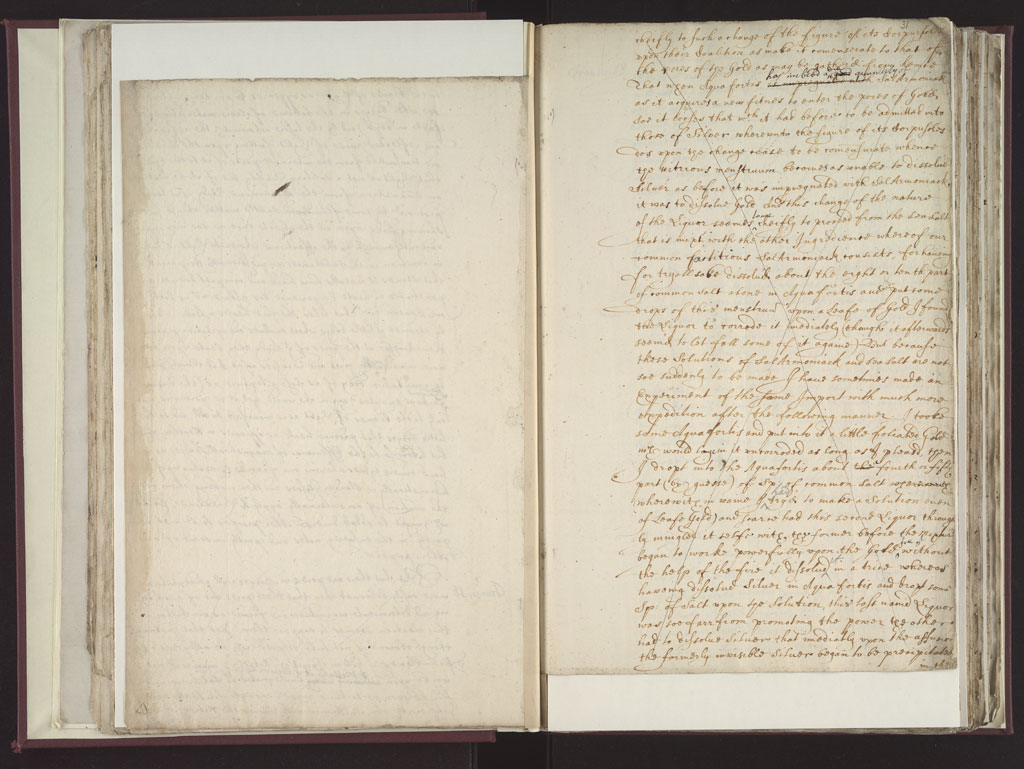 31
cheifly to such a change of the figure of its Corpuscles
upon their Coalition as make it comensurate to that of
the pores of the Gold as may be gather'd from hence
That when Aqua fortis has imbibed a good quantity of Sal Armoniack
as it acquires a new fitnes to enter the pores of Gold,
soe it looses that wch it had before to be admitted into
those of Silver whereunto the figure of its Corpuscles
do's upon the change cease to be comensurate whence
the vitrious menstruum becomes as unable to dissolve
Silver as before it was impregnated with Sal Armoniack
it was to dissolve Gold And this change of the nature
of the Liquor seemes cheifly to proceed from the sea salt
that is mixt with the other Ingredience whereof our
common factitious Sal Armoniack consists, for haveing
for tryall sake dissolu'd about the eight or tenth part
of common salt alone in Aqua fortis and put some
drops of this menstruū upon a Leafe of Gold I found
the Liquor to corrode it imediately (though it afterwards
seemd to let fall some of it againe) But because
these Solutions of Sal Armoniack and sea salt are not
soe suddenly to be made I have sometimes made an
Experiment of the same Import with much more
expedition after the following manner I tooke
some Aqua fortis and put into it a little foliated Gold
wch would lye in it uncorroded as long as I pleas'd, then
I dropt into the Aqua fortis about the fourth or fifth
part (by guesse) of Sp: of common salt
wherewith in vaine I try'd to make a solution even
of Leafe Gold) and scarce had this second Liquor through
ly mingled it selfe with the former before the mixture
began to worke powerfully upon the Gold without
the help of the fire it dissolu'd in a trice whereas
haveing dissolvd Silver in Aqua fortis and dropt some
Sp: of Salt upon the Solution, this last named Liquor
was soe farr from promoting the power the other
had to dissolve Silver that imediatly upon the affusion
the formerly invisible Silver began to be precipitated
in the